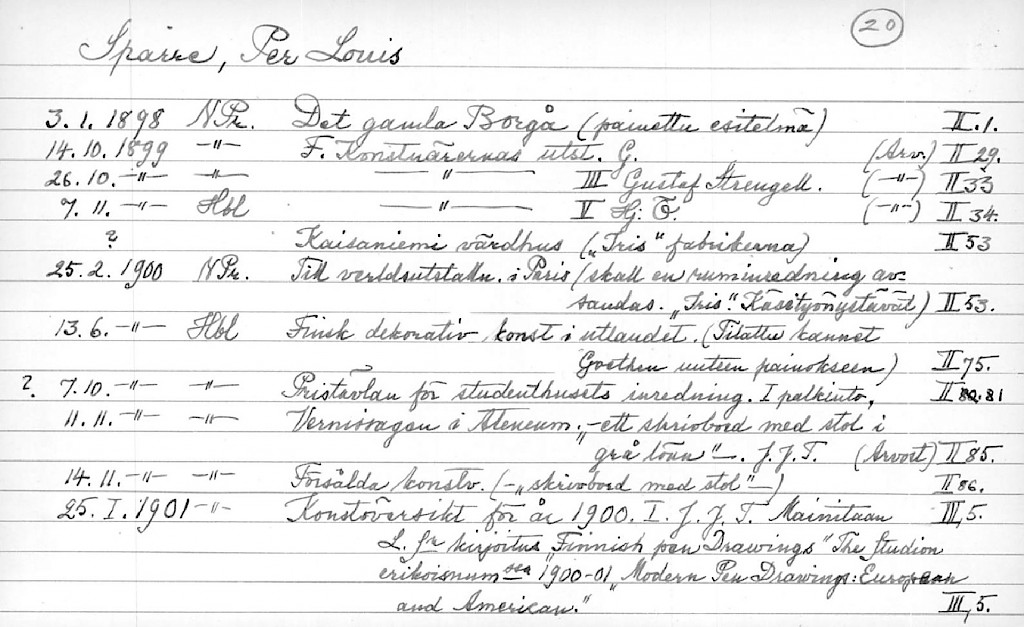 20
Sparre, Per Louis
3.1.1898 N Pr. Det gamla Borgå (painettu esitelmä) II.1.
14.10.1899 -"- F. Konstnärernas utst. G. (Arv.) II 29.
26.10.-"- -"- -"- III Gustaf Strengell. (-"-) II 33
7.11.-"- Hbl -"- V Hj: T. (-"-) II 34.
? Kaisaniemi värdhus („Iris" fabrikerna) II 53
25.2.1900 N Pr. Till verldsutställn. i Paris (skall en ruminredning av-
sändas. „Iris". Käsityönystävät) II 53.
13.6.-"- Hbl Finsk dekorativ konst i utlandet. (Tilattu kannet
Goethen uuteen painokseen) II 75.
? 7.10.-"- -"- Pristävlan för studenthusets inredning. I palkinto, II 80.81
11.11.-"- -"- Vernissagen i Ateneum. „-ett skrivbord med stol i
grå lönn"-. J.J.T. (Arvost) II 85.
14.11.-"- -"- Försålda konstv. (-„skrivbord med stol"-) II 86.
25.I.1901 -"- Konstöversikt för år 1900. I. J.J.T. Mainitaan
L. Sp. kirjoitus „Finnish pen Drawings" The Studion
erikoisnumossa 1900-01 „Modern Pen Drawings: European
and American." III,5.